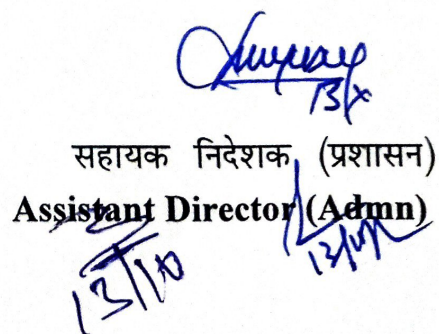 13/x
सहायक निदेशक (प्रशासन)
Assistant Director (Admn)
13/10